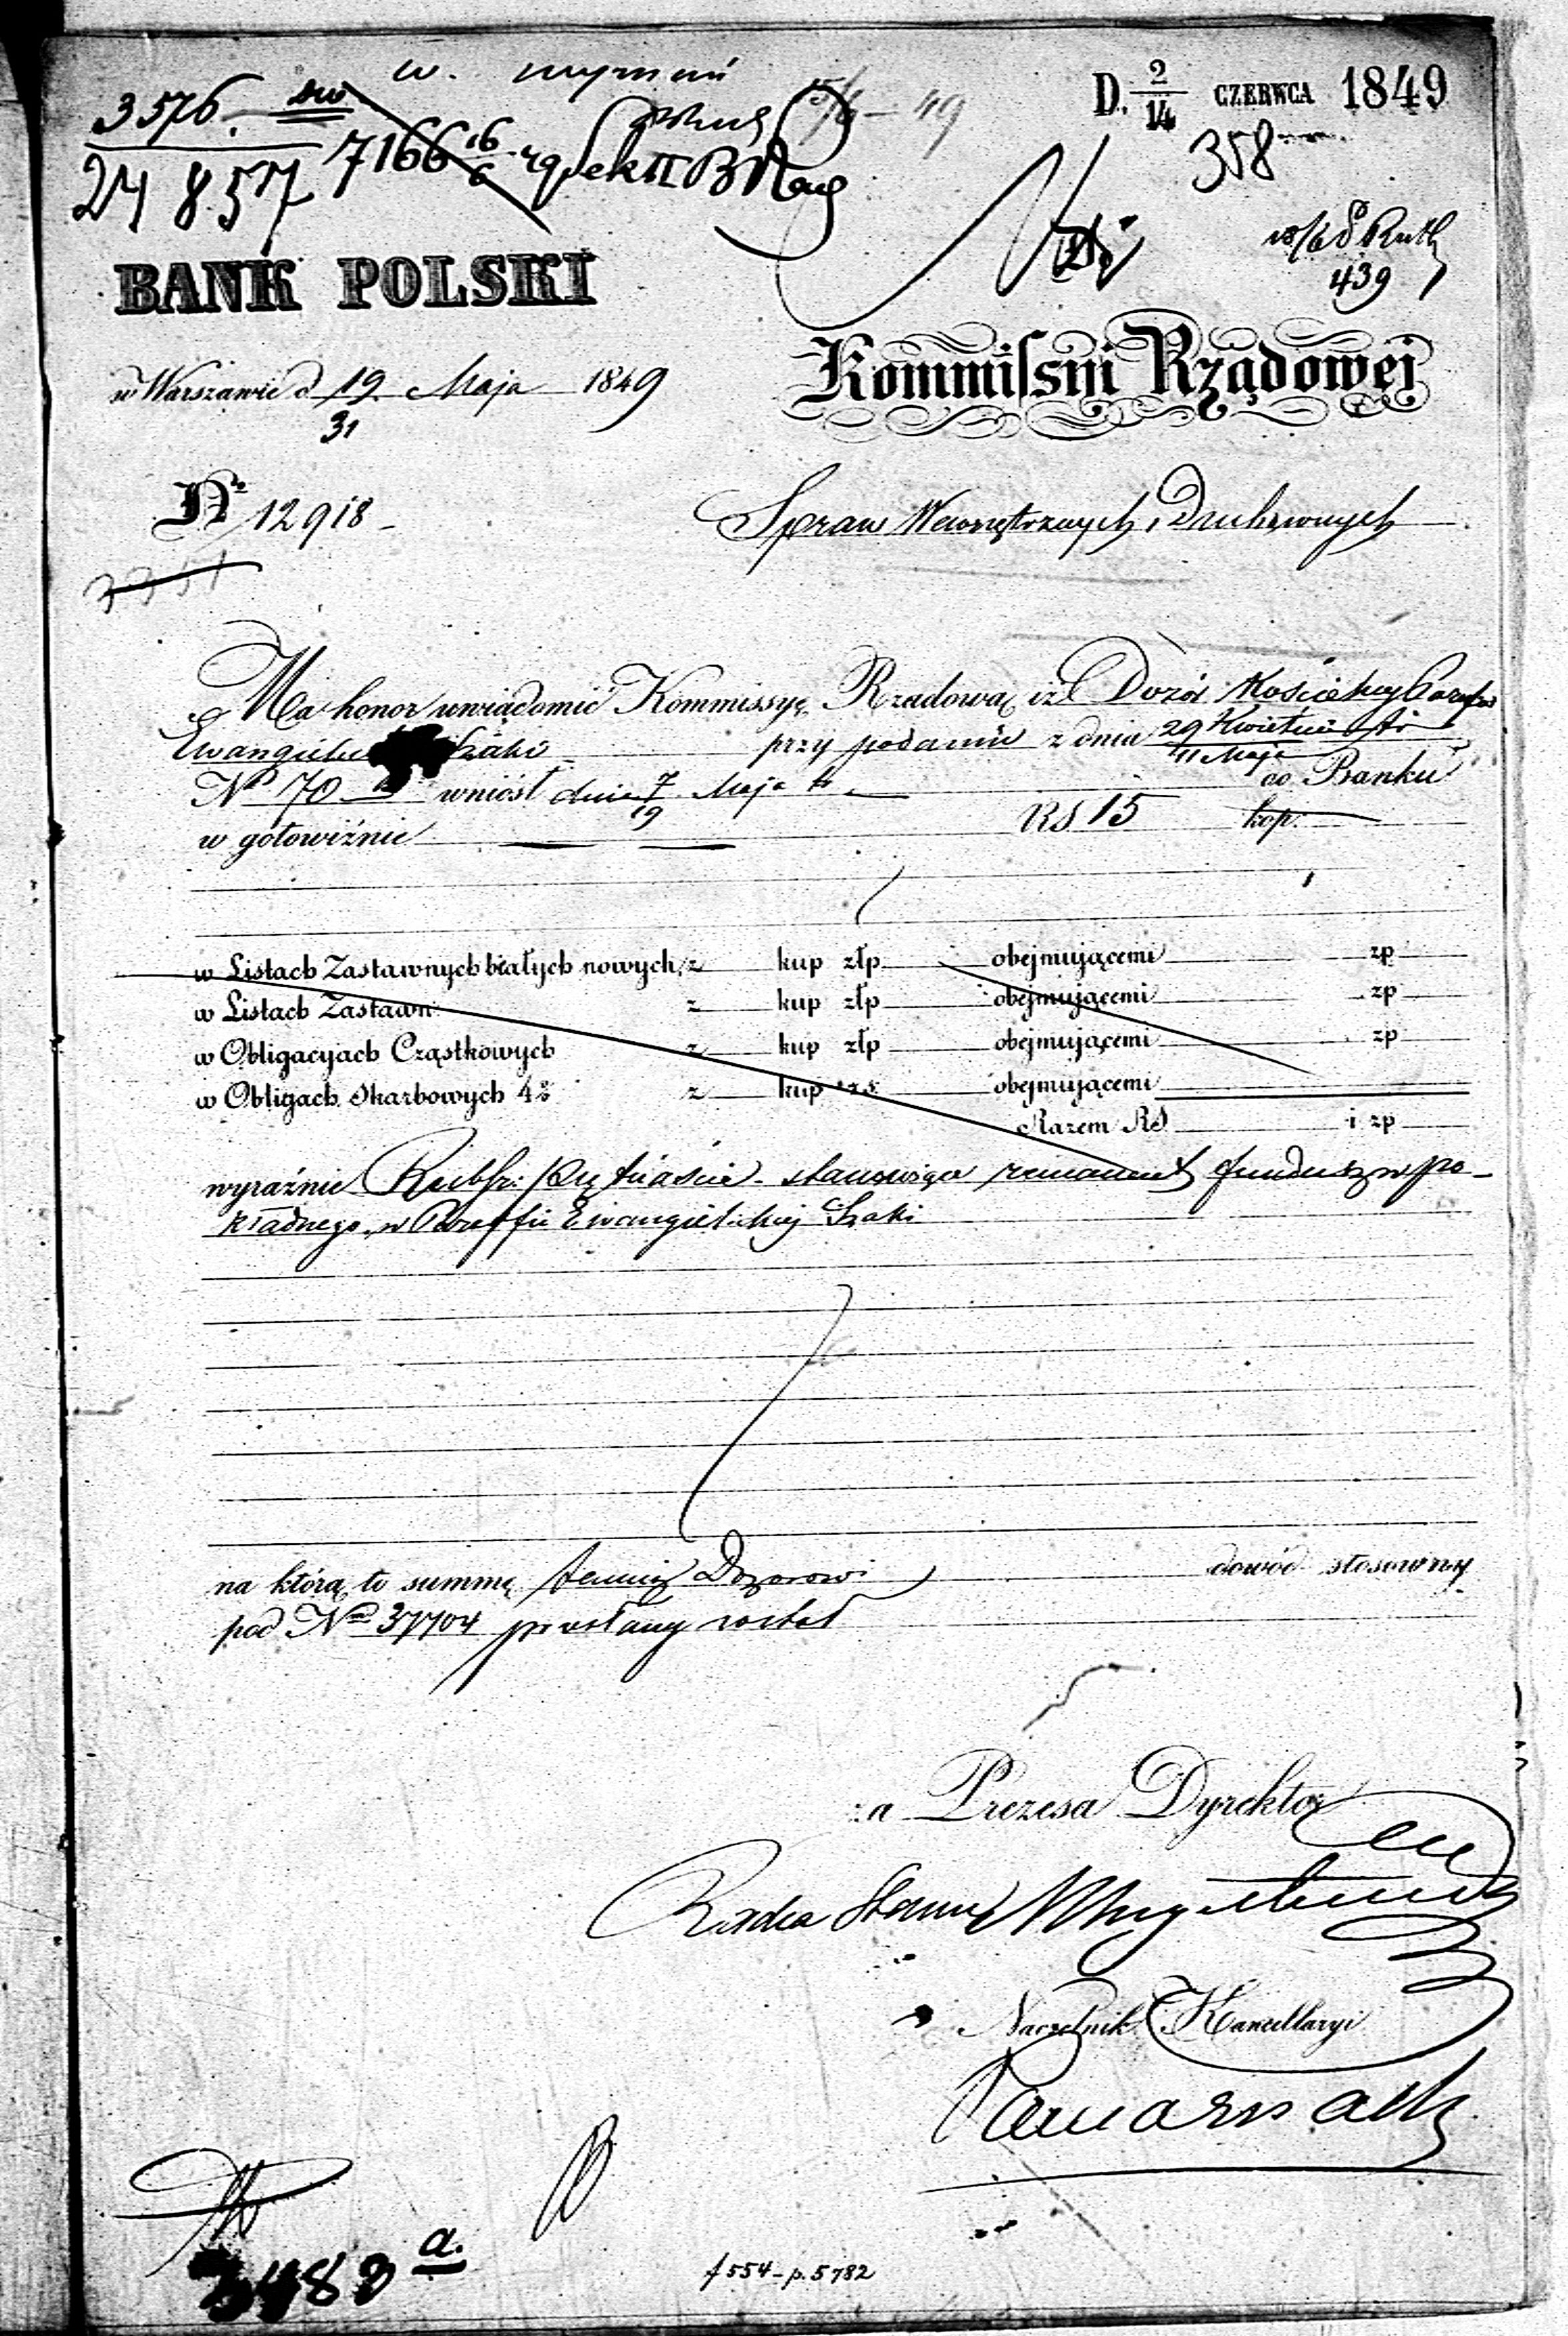 w.
3576.
24857 7166 16/6 49 Sek II B
15/6 - 49
D. 2/14 CZERWCA 1849
358
439
BANK POLSKI
w Warszawie d 19/31 Maja 1849
Kommissyi Rządowej
No 12918
Spraw Wewnętrznych i Duchownych
3351
Ma honor uwiadomić Kommissyę Rządową iż Dozór Kościelny Paraf
Ewangielic Szaki przy podaniu z dnia 29 Kwietnia / 11 Maja
No 70 wniósł dnia 7/19 Maja do Banku
w gotowiźnie RS 15 kop:
w Listach Zastawnych białych nowych z kup złp obejmującemi zp
w Listach Zastawn z kup złp obejmującemi zp
w Obligacyjach Cząstkowych z kup złp obejmującemi zp
w Obligach Skarbowych 4% z kup rs obejmującemi
Razem RS i zp
wyraźnie Rubsr: Piętnaście stanowiące remanent funduszów po-
kładnego w Paraffii Ewangielickiej Szaki
na którą to summę temuż Dozorowi dowód stosowny
pod No 37704 przesłany został
za Prezesa Dyrektor
Radca Stanu
Naczelnik Kancellaryi
3483 a.
f 554 - p. 5782